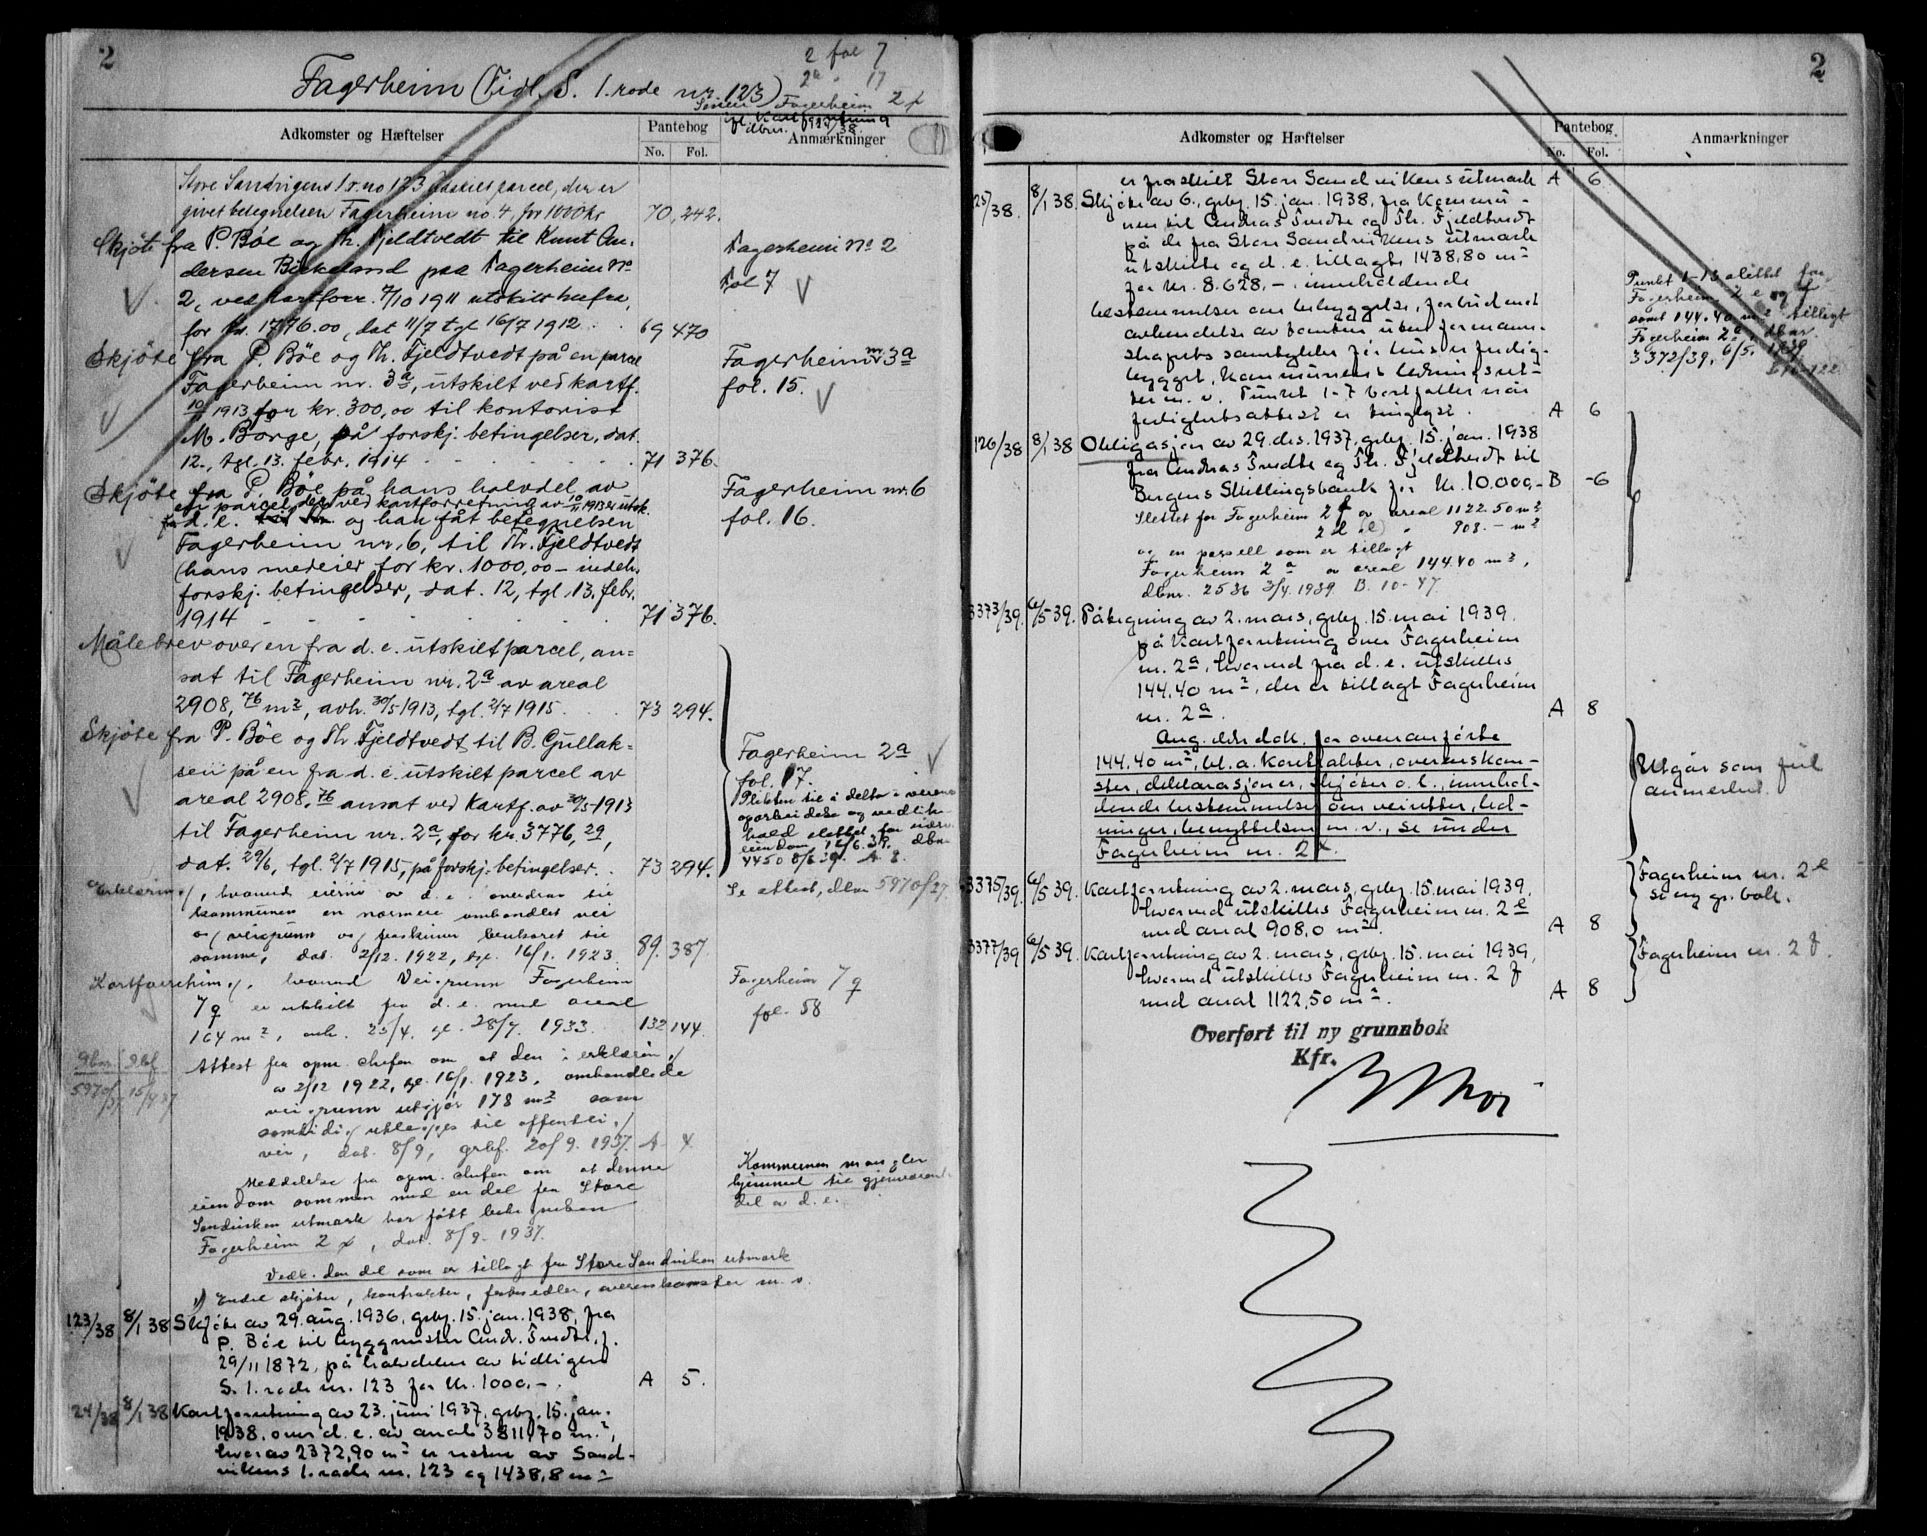 2
2 fol 7
2a " 17
Fagerheim (Tidl. S. 1. rode nr. 123)
Senere Fagerheim 2x
Adkomster og Hæftelser
Pantebog
No. Fol.
Anmærkninger
Store Sandvigens 1. r. no 123 parcel, der er
givet betegnelsen Fagerheim no. 4, for 1000 kr 70, 242.
Skjöte fra P. Böe og Th. Fjeldtvedt til Knut An-
dersen Birkeland paa Fagerheim No
2, ved kartforr. 7/10 1911 utskilt herfra,
for kr. 1776.00, dat 11/7 tgl 16/7 1912 . . 69 470
Fagerheim No 2
fol 7
Skjöte fra P. Böe og Th. Fjeldtvedt på en parcel
Fagerheim nr. 3a, utskilt ved kartf.
1913, for kr. 300,00 til kontorist
M. Börge, på forskj. betingelser, dat.
12., tgl. 13. febr. 1914 71 376.
Fagerheim nr 3a
fol. 15.
Skjöte fra P. Böe på hans halvdel av
en parcel, der ved kartforretning av 10/11 1913 er utsk.
fra d. e. og har fåt betegnelsen
Fagerheim nr. 6, til Th. Fjeldtvedt
(hans medeier for kr. 1000,00 – indeh.
forskj. betingelser, dat. 12, tgl. 13. febr.
1914 71 376.
Fagerheim nr. 6
fol. 16.
Målebrev over en fra d. e. utskilt parcel, an=
sat til Fagerheim nr. 2a av areal
2908,76 m2, avh. 30/5 1913, tgl. 2/7 1915 73 294.
Skjöte fra P. Böe og Th. Fjeldtvedt til B. Gullak-
sen på en fra d. e. utskilt parcel av
areal 2908,76 ansat ved Kartf. av 30/5-1913
til Fagerheim nr. 2a, for kr. 3776,29,
dat. 29/6, tgl. 2/7 1915, på forskj. betingelser. 73 294.
Fagerheim 2a
fol. 17.
Plikten til å delta i veiens
oparbeidelse og vedlike-
hold slettet for
eiendom, dbnr
4450 A. 8.
Se attest, dbnr 5970/37.
Erklæring, hvorved eierne av d. e. overdrar til
kommunen en nærmere omhandlet vei
og veigrunn og fraskriver
samme, dat. 2/12. 1922, tgl. 16/1. 1923. 89. 387.
Kartforretning, hvorved Veigrunn Fagerheim
7g er utskilt fra d. e. med areal
164 m2, avh. 25/4. gl. 28/7. 1933. 132 144.
Fagerheim 7g
fol. 58
Dbnr. Dbf.
5970/37 15/9 37
Attest fra opm. chefen om at den i erklæring
av 2/12 1922, gl. 16/1. 1923, omhandlede
veigrunn utgjør 178 m2 som
samtidig utlegges til offentlig
vei, dat. 8/9, grbf. 20/9. 1937. A 4
Meddelelse fra opm. chefen om at denne
eiendom sammen med en del fra Store
Sandviken utmark har fått betegnelsen
Fagerheim 2x, dat. 8/9. 1937.
Kommunen mangler
hjemmel til gjenværende
del av d. e.
Vedk. den del som er tillagt fra Store Sandviken utmark
1) Endel skjøter, kontrakter, festesedler, overenskomster m. v.
123/38 8/1 38 Skjöte av 29. aug. 1936, grbf. 15. jan. 1938, fra
P. Böe til byggmester Andr. Tvedte, f.
29/11 1872, på halvdelen av tidligere
S. 1. rode nr. 123 for kr. 1000,– . A 5.
24/38 8/1 38 Kartforretning av 23. juni 1937, grbf. 15. jan.
1938, over d. e. av areal 3811,70 m2,
hvorav 2372,90 m2 er resten av Sand-
vikens 1. rode nr. 123 og 1438,8 m2
2
Adkomster og Hæftelser
Pantebog
No. Fol.
Anmærkninger
er fraskilt Store Sandvikens utmark A 6
125/38. 8/1 38. Skjöte av 6., grbf. 15. jan. 1938, fra Kommu-
nen til Andreas Tvedte og Th. Fjeldtvedt
på de fra Store Sandvikens utmark
utskilte og d. e. tillagte 1438,80 m2
for kr. 8.628,– inneholdende
bestemmelser om bebyggelse, forbud mot
avhendelse av tomten uten formann-
skapets samtykke før hus er ferdig-
bygget, kommunens ledningsnet-
ter m. v. Punkt 1-7 bortfaller når
ferdighetsattest er tinglyst. A 6
Punkt 1-13 slettet for
Fagerheim 2 e og f
samt 144.40 m2 tillagt
Fagerheim 2a, dbnr.
3372/39, 6/5. 1939
126/38 8/1 38 Obligasjon av 29. des. 1937, grbf. 15. jan. 1938
fra Andreas Tvedte og Th. Fjeldtvedt til
Bergens Skillingsbank for kr. 10.000,– B 6
Slettet for Fagerheim 2 f av areal 1122.50 m2
2 e 908.– m2
og en parsell som er tillagt
Fagerheim 2a av areal 144.40 m2,
dbnr. 2536 3/4. 1939 B. 10-47
3373/39. 6/5 39. Påtegning av 2. mars, grbf. 15. mai 1939
på Kartforretning over Fagerheim
nr. 2a, hvorved fra d. e. utskilles
144.40 m2, der er tillagt Fagerheim
nr. 2a. A 8
Ang. eldre dok. for ovenanførte
144,40 m2, bl. a. kontrakter, overenskom-
ster, deklarasjoner, skjöter o. l., innehol-
dende bestemmelser om veiretter, led-
ninger, benyttelsen m. v., se under
Fagerheim nr. 2x.
Utgår som feil
anmerket.
3375/39. 6/5 39. Kartforretning av 2. mars, grbf. 15. mai 1939,
hvorved utskilles Fagerheim nr. 2 e
med areal 908,0 m2. A 8
Fagerheim nr. 2 e
se ny gr. bok.
3377/39 6/5 39. Kartforretning av 2. mars, grbf. 15. mai 1939,
hvorved utskilles Fagerheim nr. 2 f
med areal 1122,50 m2. A 8
Fagerheim nr. 2 f.
Overført til ny grunnbok
Kfr.